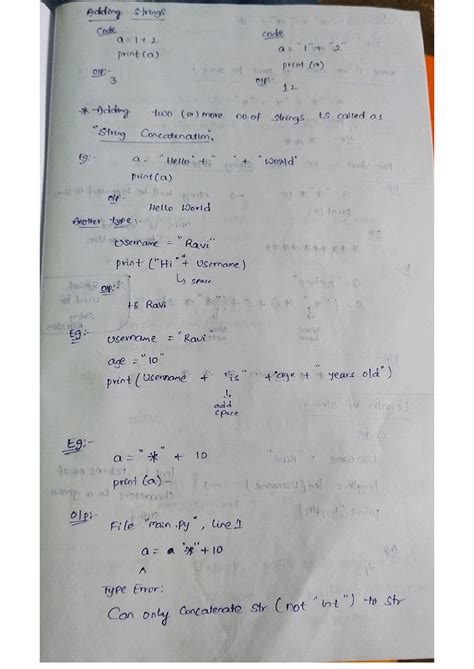 Adding Strings
Code
a = 1 + 2
print(a)
O/P:-
3
code
a = "1" + "2"
print (a)
O/P:-
12
* Adding two (or) more no.of strings is called as
"String Concatenation".
Eg:- a = "Hello" + " " + "World"
print(a)
O/P:-
Hello World
Another type:-
Username = "Ravi"
print ("Hi " + Username)
↳ space
O/P:-
Hi Ravi
Eg:- username = "Ravi"
age = "10"
print (Username + " is " + age + " years old")
↓
add
space
Eg:-
a = "*" + 10
print (a)
O/P:-
File "main.py", line 1
a = "*" + 10
^
Type Error:
Can only Concatenate str (not "int") to str